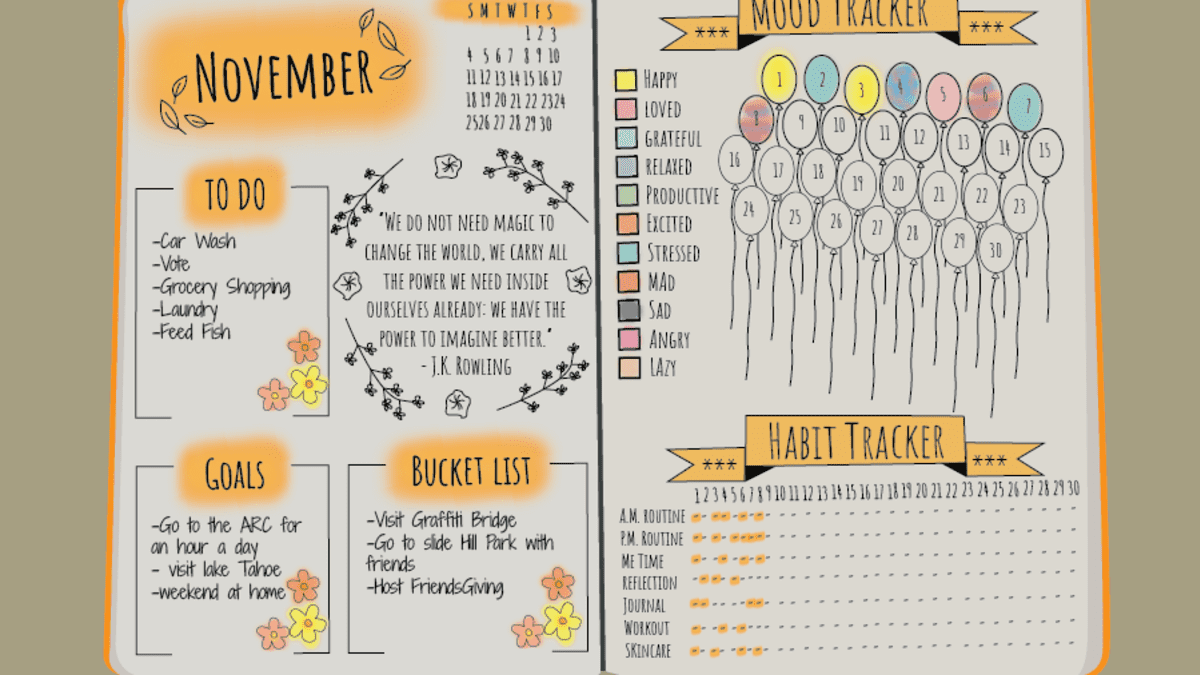 NOVEMBER
S M T W T F S
1 2 3
4 5 6 7 8 9 10
11 12 13 14 15 16 17
18 19 20 21 22 23 24
25 26 27 28 29 30
TO DO
-Car Wash
-Vote
-Grocery Shopping
-Laundry
-Feed Fish
"WE DO NOT NEED MAGIC TO
CHANGE THE WORLD, WE CARRY ALL
THE POWER WE NEED INSIDE
OURSELVES ALREADY: WE HAVE THE
POWER TO IMAGINE BETTER."
- J.K. ROWLING
GOALS
-Go to the ARC for
an hour a day
- visit lake Tahoe
-weekend at home
BUCKET LIST
-Visit Graffiti Bridge
-Go to slide Hill Park with
friends
-Host FriendsGiving
*** MOOD TRACKER ***
HAPPY
LOVED
GRATEFUL
RELAXED
PRODUCTIVE
EXCITED
STRESSED
MAD
SAD
ANGRY
LAZY
1 2 3 4 5 6 7
8 9 10 11 12 13 14 15
16 17 18 19 20 21 22 23
24 25 26 27 28 29 30
*** HABIT TRACKER ***
1 2 3 4 5 6 7 8 9 10 11 12 13 14 15 16 17 18 19 20 21 22 23 24 25 26 27 28 29 30
A.M. ROUTINE
P.M. ROUTINE
ME TIME
REFLECTION
JOURNAL
WORKOUT
SKINCARE